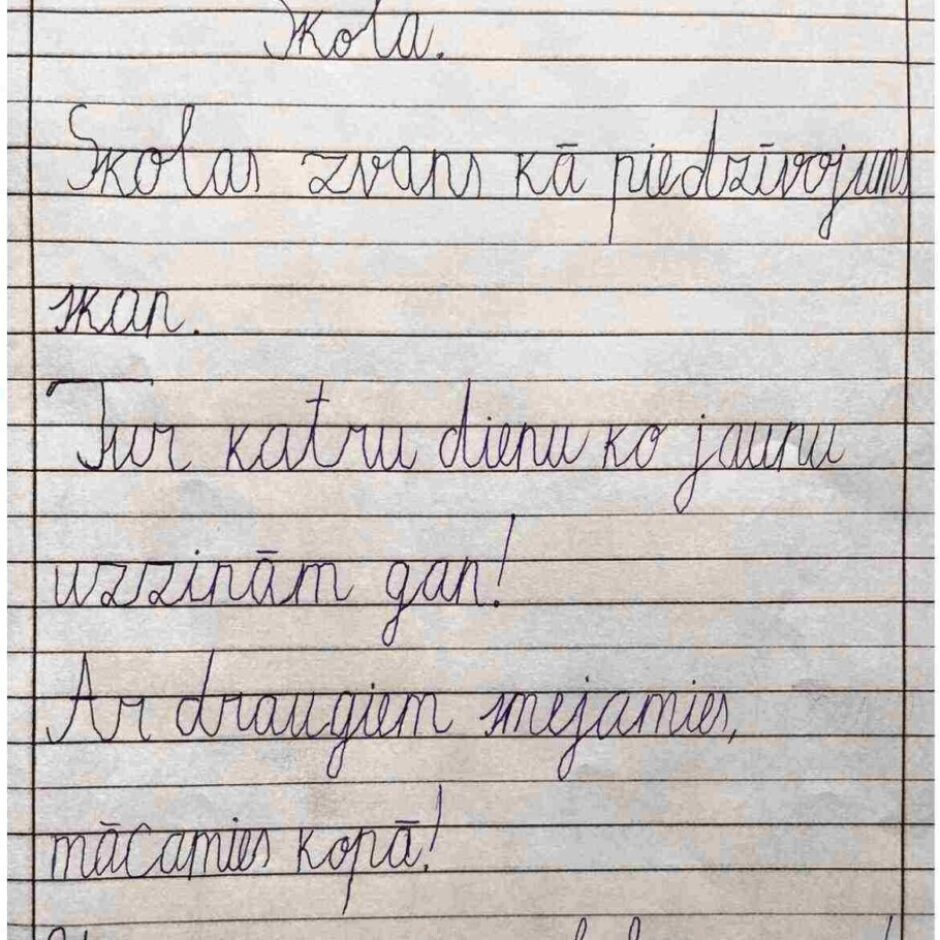 Skola.
Skolas zvans kā piedzīvojums
skan.
Tur katru dienu ko jaunu
uzzinām gan!
Ar draugiem smejamies,
mācamies kopā!